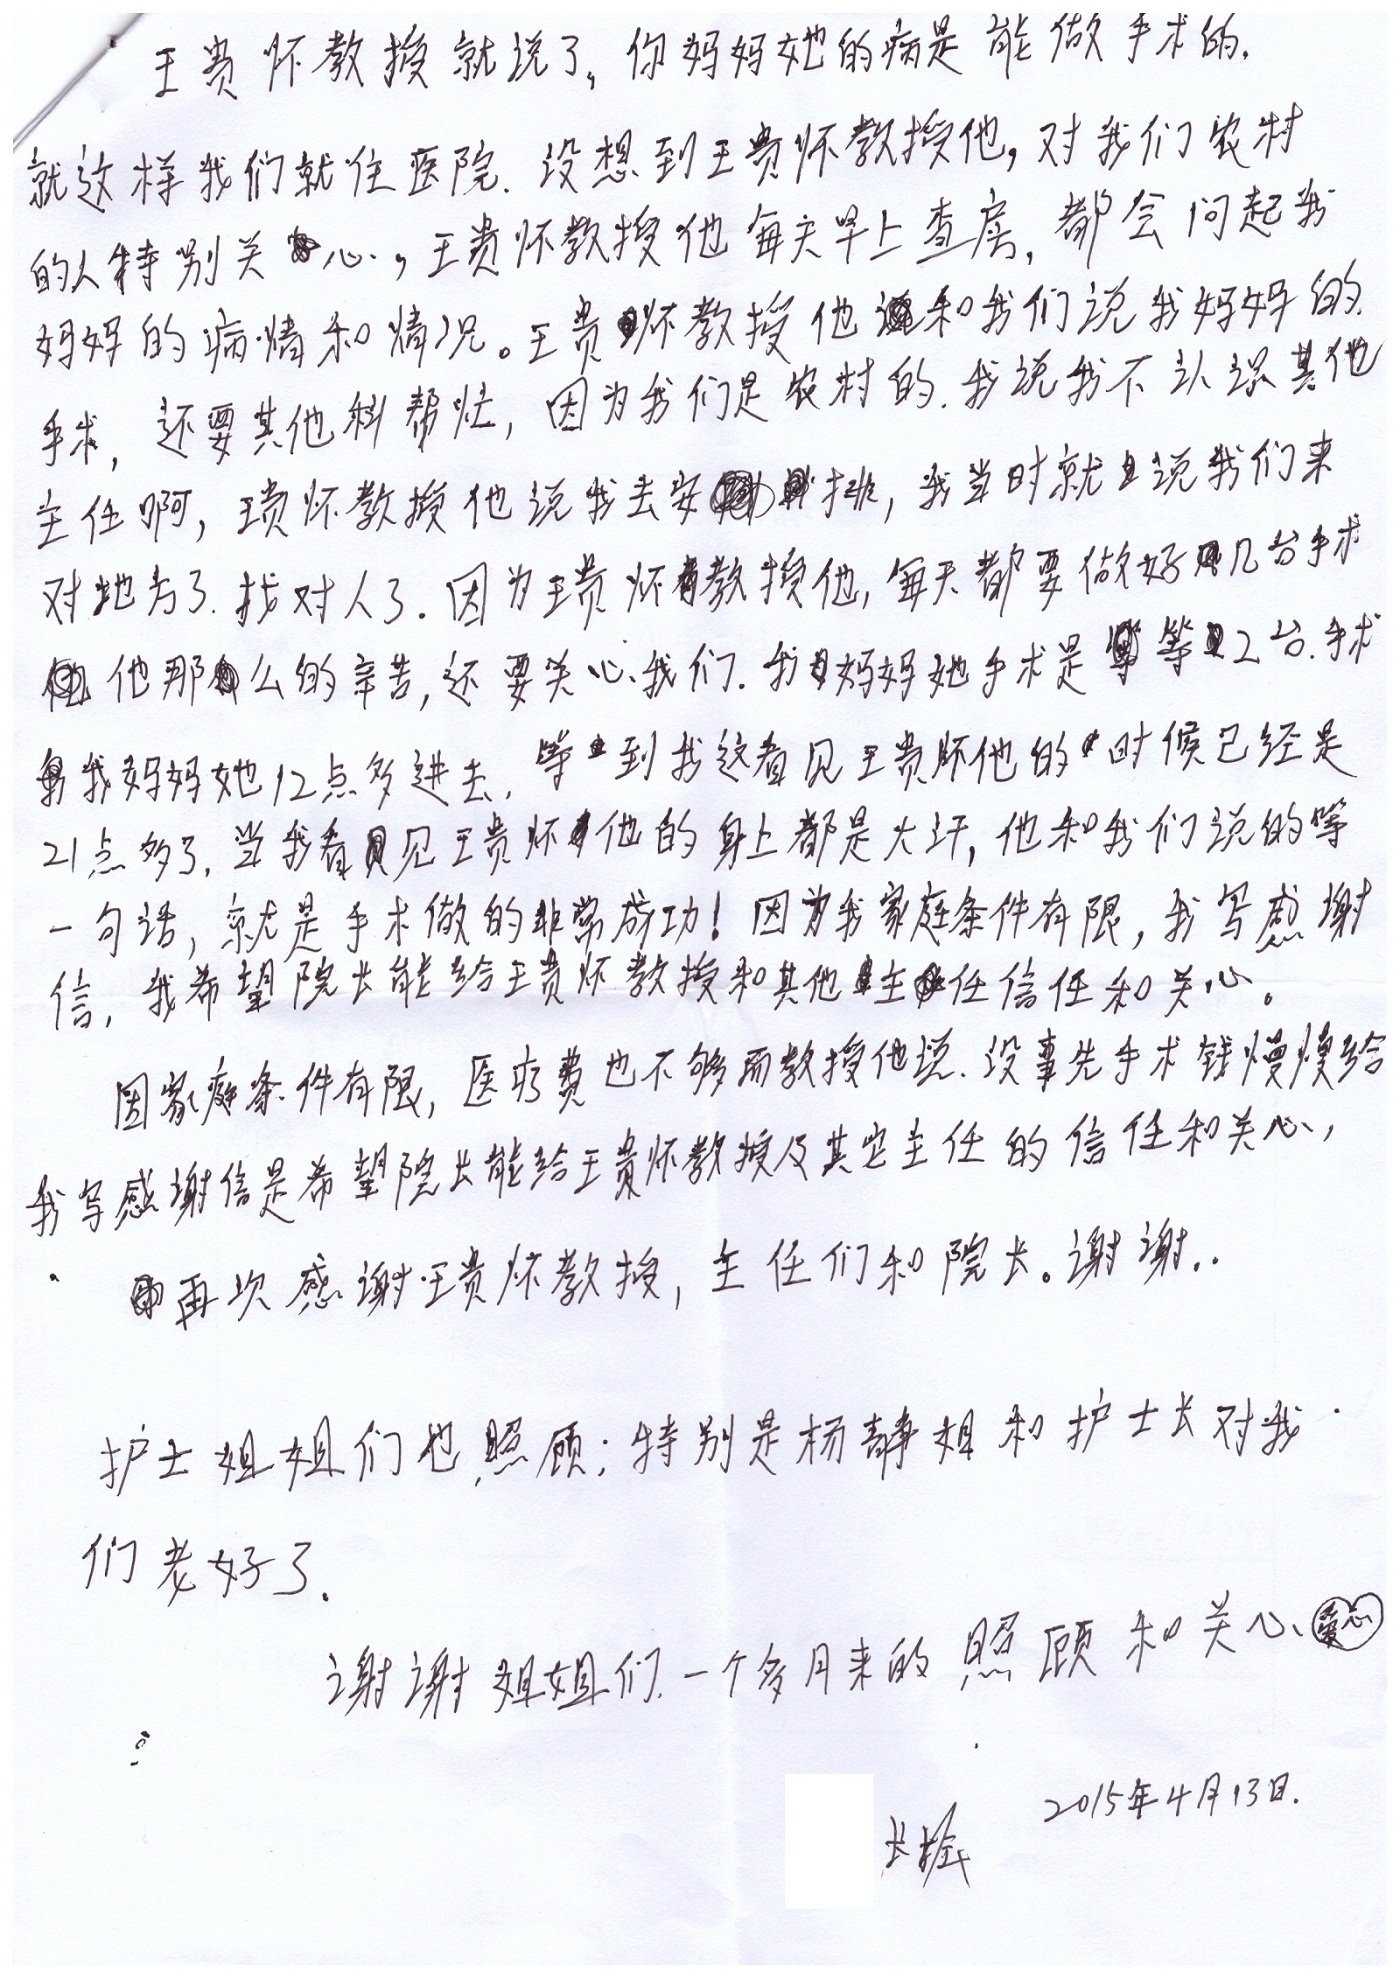 王贵怀教授就说了,你妈妈她的病是能做手术的.
就这样我们就住医院.没想到王贵怀教授他,对我们农村
的人特别关心.,王贵怀教授他每天早上查房,都会问起我
妈妈的病情和情况。王贵怀教授他和我们说我妈妈的
手术,还要其他科帮忙,因为我们是农村的.我说我不认识其他
主任啊,王贵怀教授他说我去安排,我当时就说我们来
对地方了.找对人了.因为王贵怀教授他,每天都要做好几台手术
他那么的辛苦,还要关心我们.我妈妈她手术是第2台.手术
我妈妈她12点多进去.等到我这看见王贵怀他的时候已经是
21点多了.当我看见王贵怀他的身上都是大汗,他和我们说的第
一句话,就是手术做的非常成功!因为我家庭条件有限,我写感谢
信,我希望院长能给王贵怀教授和其他主任信任和关心。
因家庭条件有限,医疗费也不够而教授他说.没事先手术钱慢慢给
我写感谢信是希望院长能给王贵怀教授及其它主任的信任和关心,
再次感谢王贵怀教授,主任们和院长。谢谢..
护士姐姐们也照顾;特别是杨静姐和护士长对我
们老好了.
谢谢姐姐们.一个多月来的照顾和关心爱心
2015年4月13日.